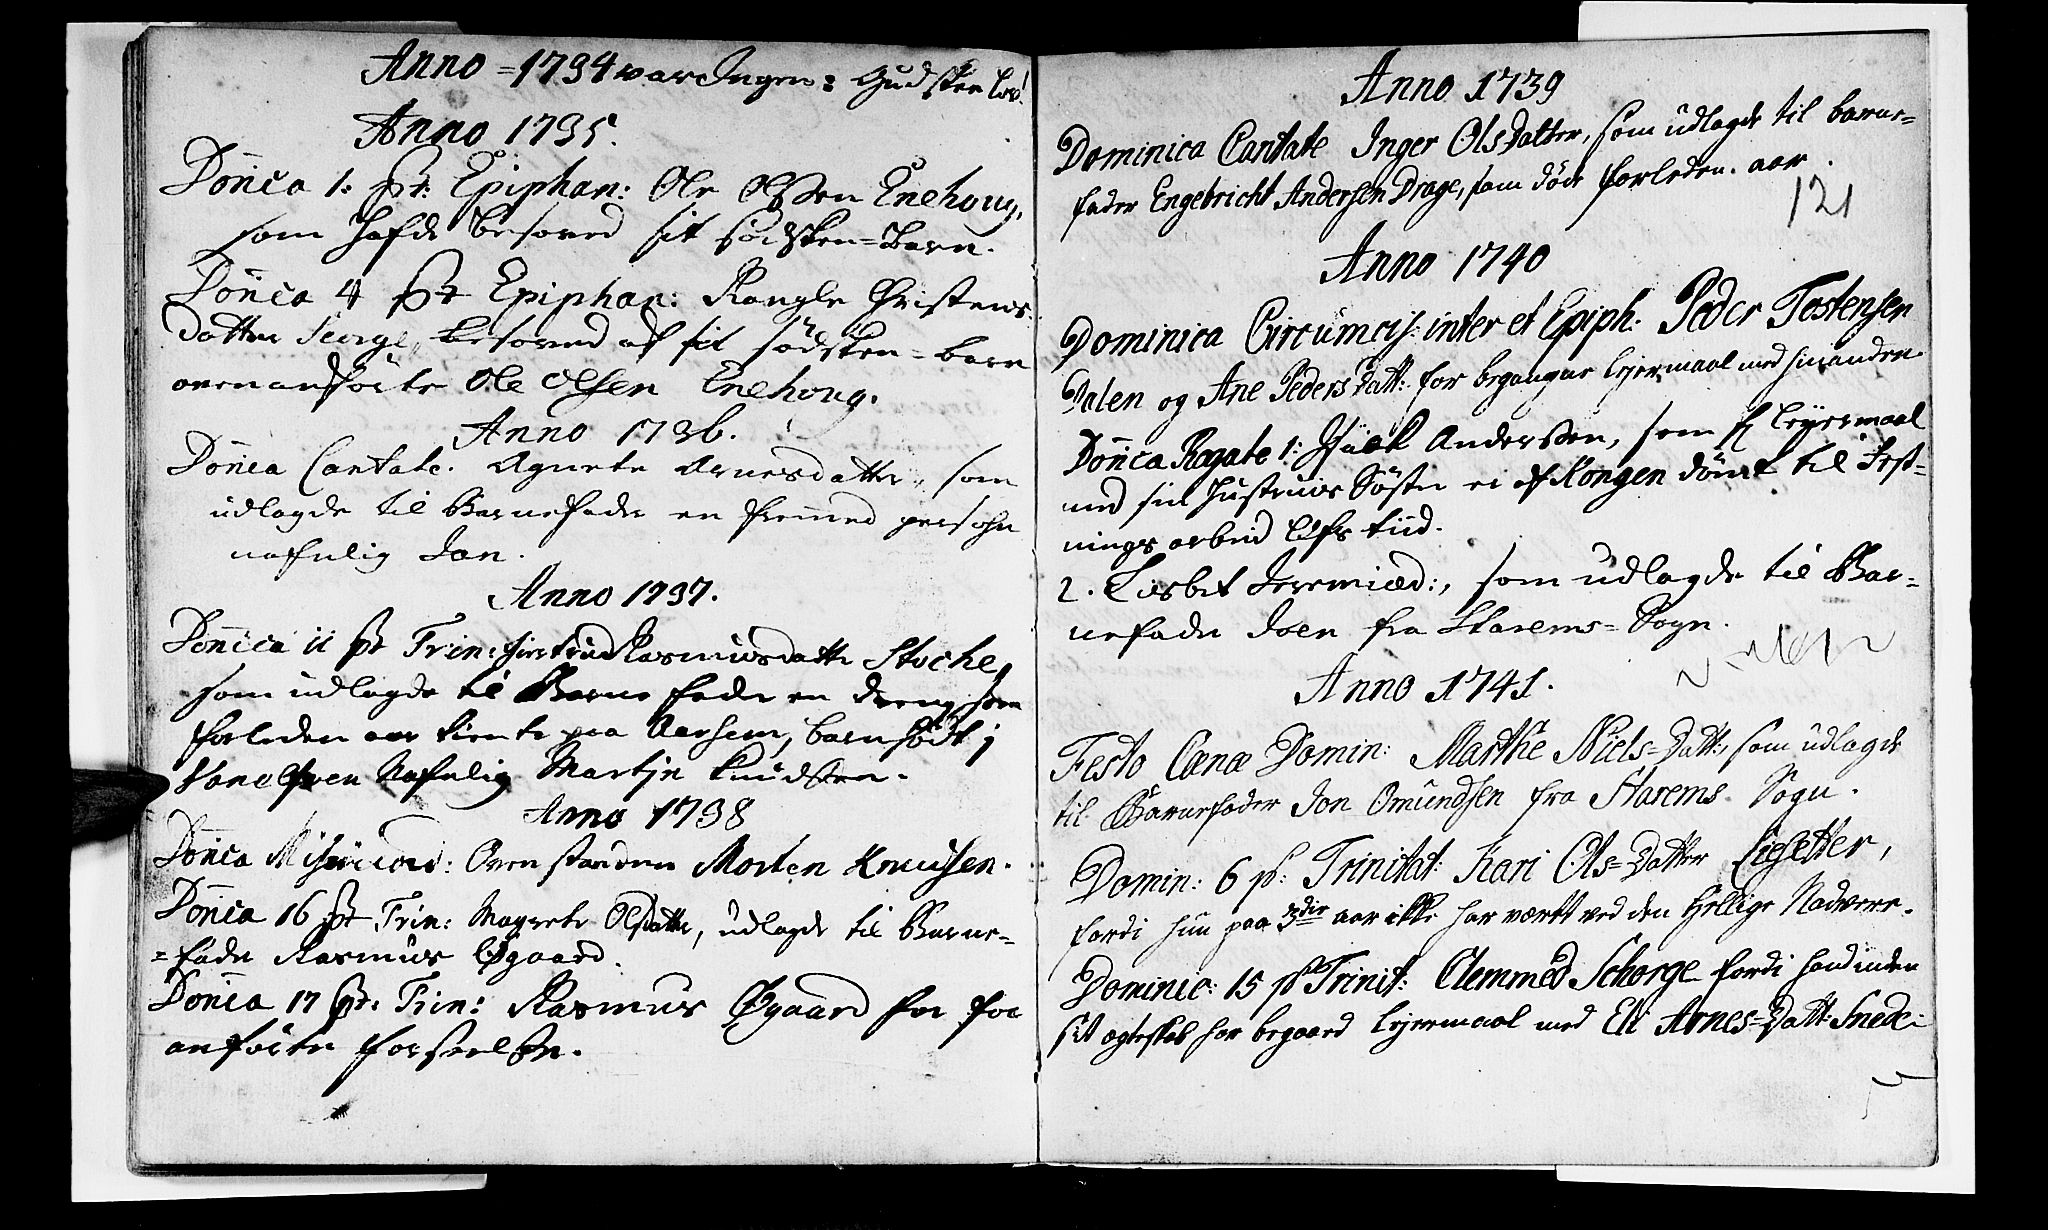 Anno = 1734 var Ingen: Gud skee lov!
Anno 1735.
Dom̄ca 1. pt: Epiphan: Ole Olssen Enehoug,
som hafde besoved sit södsken=barn.
Dom̄ca 4 pt Epiphan: Rangle Christens
datter besoved af sit södsken=barn
ovenanförte Ole Olsen Enehoug.
Anno 1736.
Dom̄ca Cantate. Agnete Arnesdatter, som
udlagde til Barnefader en fremmed persohn
nafnlig Jan.
Anno 1737.
Dom̄ca 11 pt Trin: Rasmusdatter Stoche,
som udlagde til Barne fader en dreng som
forleden aar tiente paa Aarsem, barnfödt i
Vanelfven Nafnlig Martje Knudssen.
Anno 1738
Dom̄ca Misericord: Ovenstaaende Morten Knudsen.
Dom̄ca 16 pt Trin: Magrete Olsdatter, udlagde til Barne=
=fader Rasmus Øgaard.
Dom̄ca 17 pt: Trin: Rasmus Øgaard for for
anförte forseelse.
Anno 1739
Dominica Cantate Inger Olsdatter, som udlagde til barne=
fader Engebricht Andersen Drage, som döde forleden aar.
121
Anno 1740
Dominica Circumcis: inter et Epiph: Peder Tostensen
Dalen og Ane Peders Datt: for begangne lejermaal med hinanden
Dom̄ca Rogate 1: Isaak Anderssen, som for Leyermaal
med sin Hustrues Söster er af Kongen dömt til Fæst=
nings arbeid Lifs tiid.
2. Lisbet Jeremiæd:, som udlagde til Bar=
nefader Joen fra Starems=Sogn.
Anno 1741.
Festo Cænæ Domin: Marthe Niels=Datt:, som udlagde
til Barnefader Jon Omundsen fra Starems Sogn.
Domin: 6 p: Trinitat: Kari Ols=Datter Lisetter,
fordi hun paa 3die aar ikke har været ved den Hellige Nadvere.
Dominic: 15 p Trinit: Clemmed Schorge fordi hand inden
sit ægteskab har begaaed lejermaal med Eli Arnes=Datt: Snede: